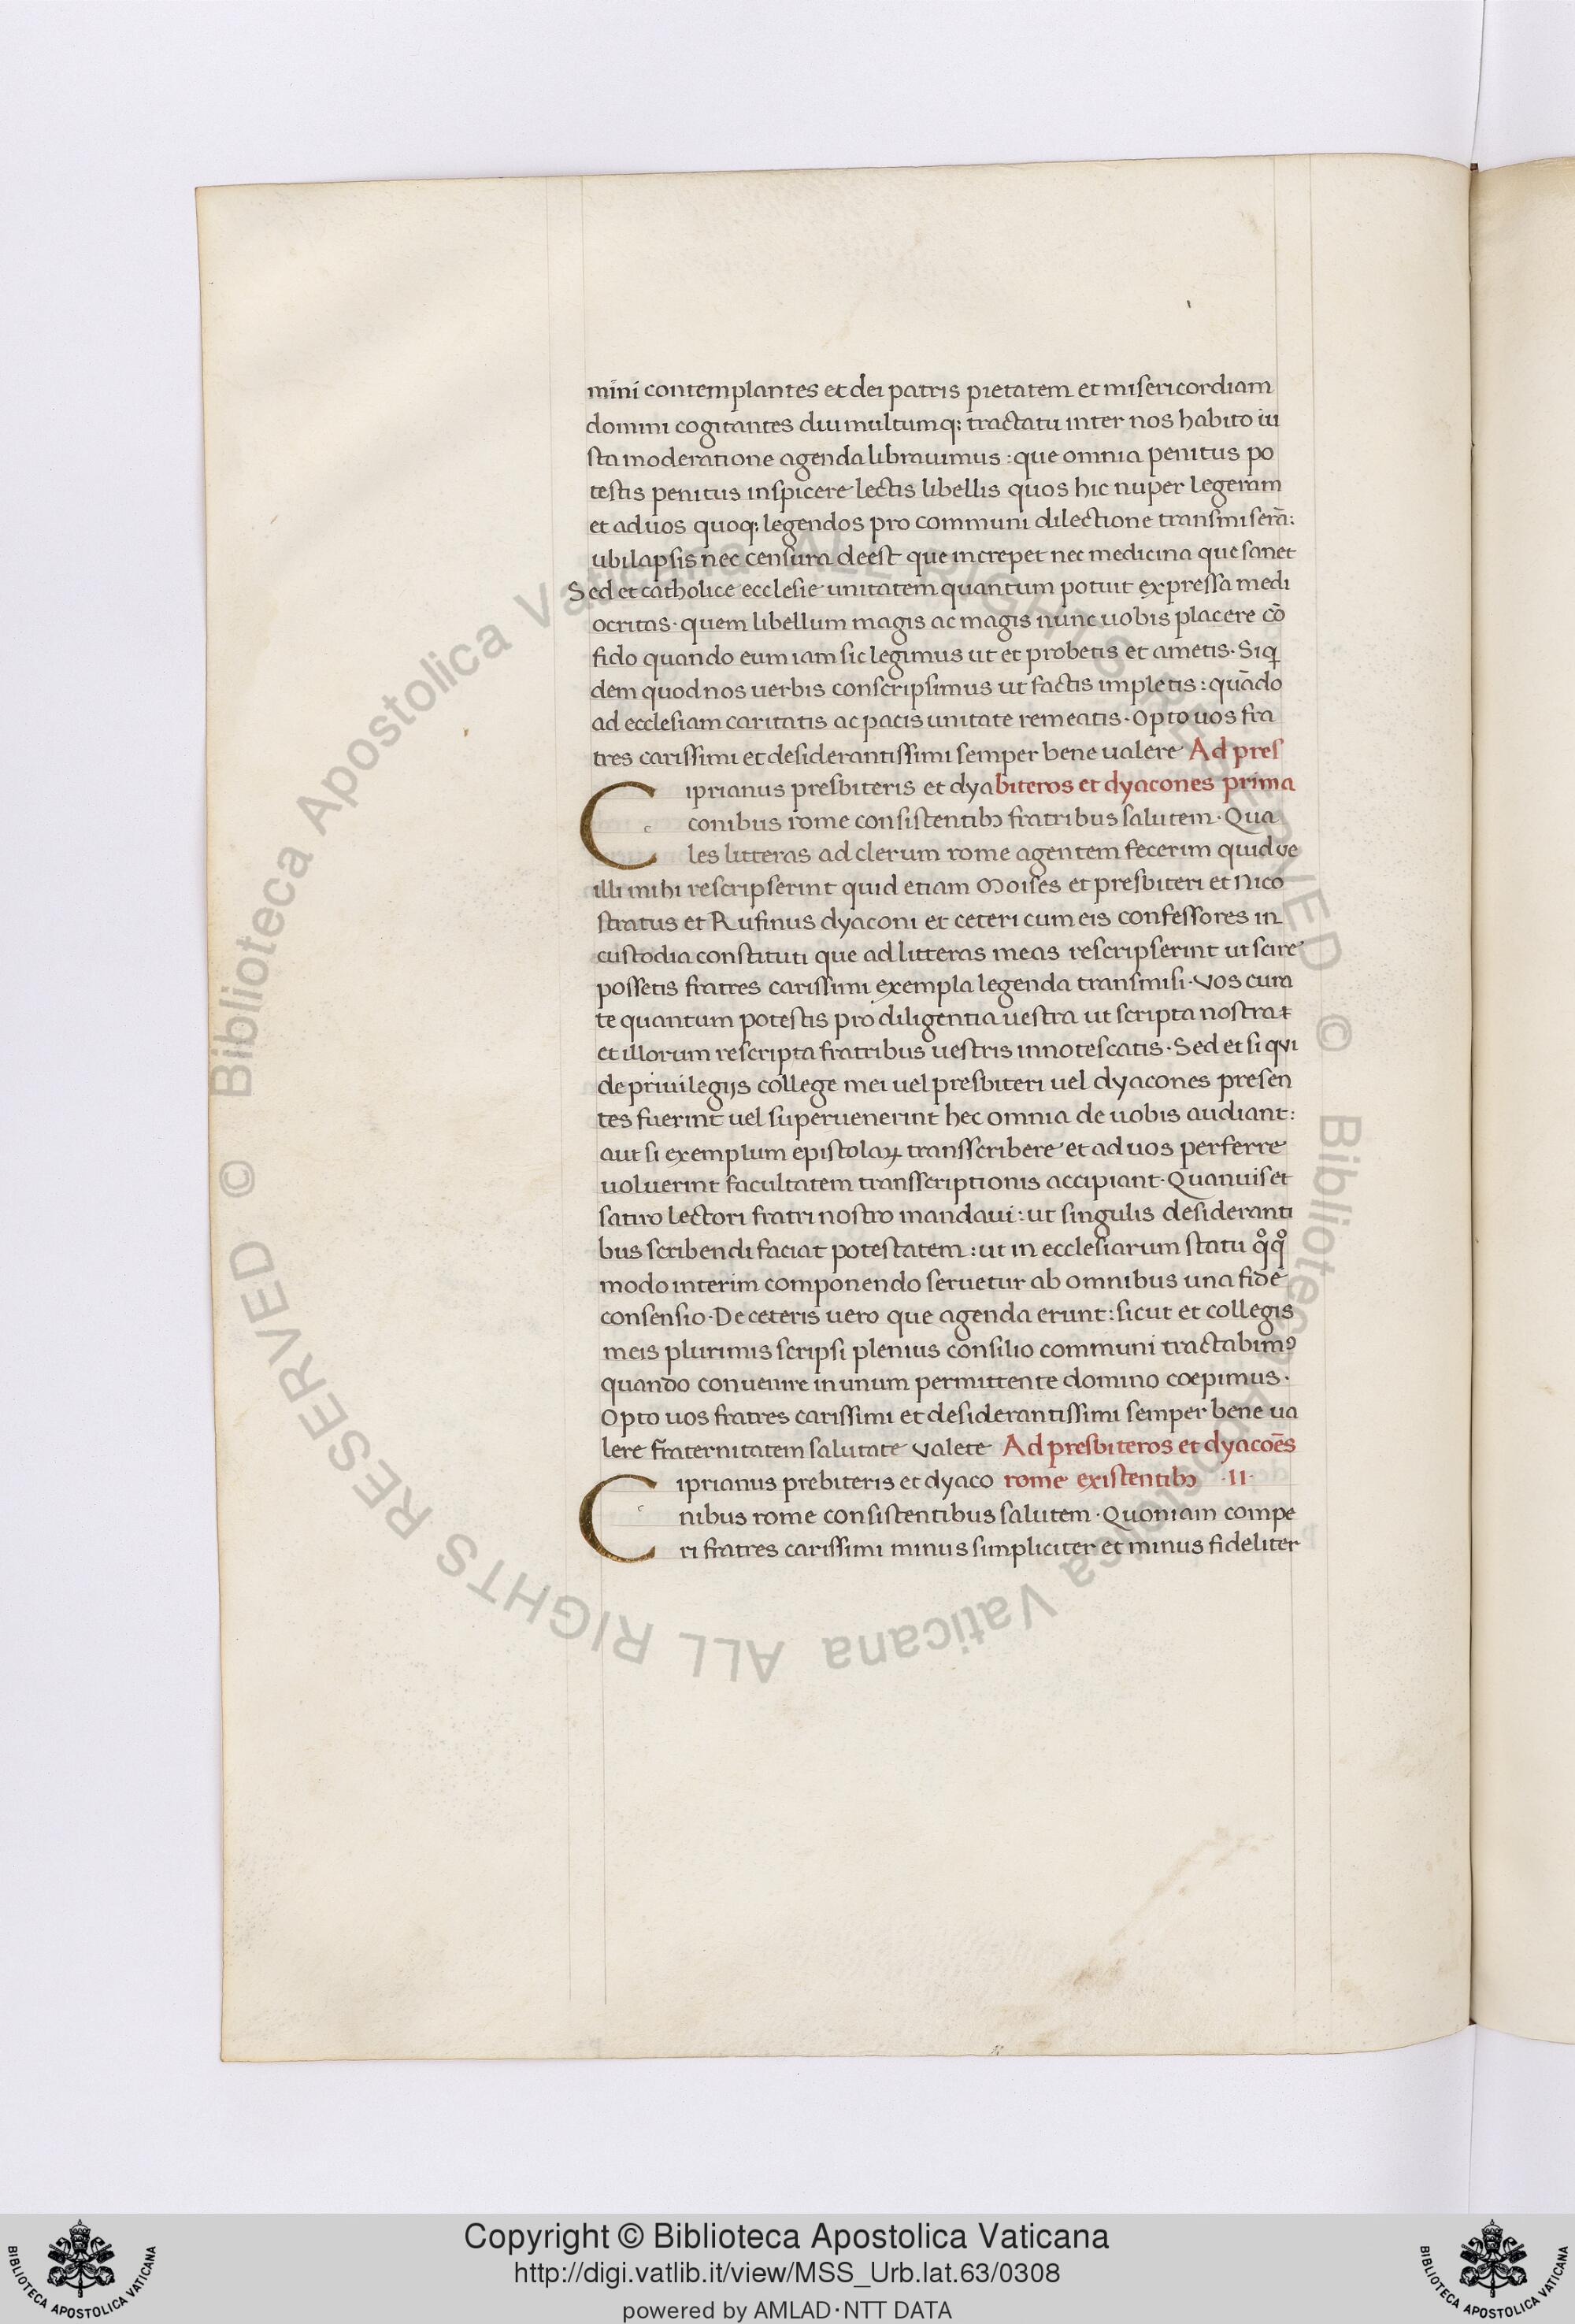 mini contemplantes et dei patris pietatem et misericordiam
domini cogitantes diu multumq; tractatu inter nos habito iu
sta moderatione agenda librauimus : que omnia penitus po
testis penitus inspicere lectis libellis quos hic nuper legeram
et ad uos quoq; legendos pro communi dilectione transmiserā:
ubi lapsis nec censura deest que increpet nec medicina que sanet
Sed et catholice ecclesie unitatem quantum potuit expressa medi
ocritas · quem libellum magis ac magis nunc uobis placere cō
fido quando eum iam sic legimus ut et probetis et ametis · Siqi
dem quod nos uerbis conscripsimus ut factis impletis : quādo
ad ecclesiam caritatis ac pacis unitate remeatis · Opto uos fra
tres carissimi et desiderantissimi semper bene ualere Ad pres
Ciprianus presbiteris et dyabiteros et dyacones prima
conibus rome consistentibꝫ fratribus salutem · Qua
les litteras ad clerum rome agentem fecerim quid ve
illi mihi rescripserint quid etiam Moises et presbiteri et Nico
stratus et Rufinus dyaconi et ceteri cum eis confessores in
custodia constituti que ad litteras meas rescripserint ut scire
possetis fratres carissimi exempla legenda transmisi · Vos cura
te quantum potestis pro diligentia uestra ut scripta nostra
et illorum rescripta fratribus uestris innotescatis · Sed et si qvi
de priuilegijs college mei uel presbiteri uel dyacones presen
tes fuerint uel superuenerint hec omnia de uobis audiant :
aut si exemplum epistolaꝝ transscribere et ad uos perferre
uoluerint facultatem transscriptionis accipiant · Quanuis et
satiro lectori fratri nostro mandaui : ut singulis desideranti
bus scribendi faciat potestatem : ut in ecclesiarum statu qͦqͦ
modo interim componendo seruetur ab omnibus una fide
consensio · De ceteris uero que agenda erunt : sicut et collegis
meis plurimis scripsi plenius consilio communi tractabimꝰ
quando conuenire in unum permittente domino coepimus ·
Opto uos fratres carissimi et desiderantissimi semper bene ua
lere fraternitatem salutate valete Ad presbiteros et dyacoēs
Ciprianus prebiteris et dyaco rome existentibꝫ · II ·
nibus rome consistentibus salutem · Quoniam compe
ri fratres carissimi minus simpliciter et minus fideliter
© Biblioteca Apostolica Vaticana ALL RIGHTS RESERVED © Biblioteca Apostolica Vaticana ALL RIGHTS RESERVED
Copyright © Biblioteca Apostolica Vaticana
http://digi.vatlib.it/view/MSS_Urb.lat.63/0308
powered by AMLAD·NTT DATA
BIBLIOTECA APOSTOLICA VATICANA
BIBLIOTECA APOSTOLICA VATICANA